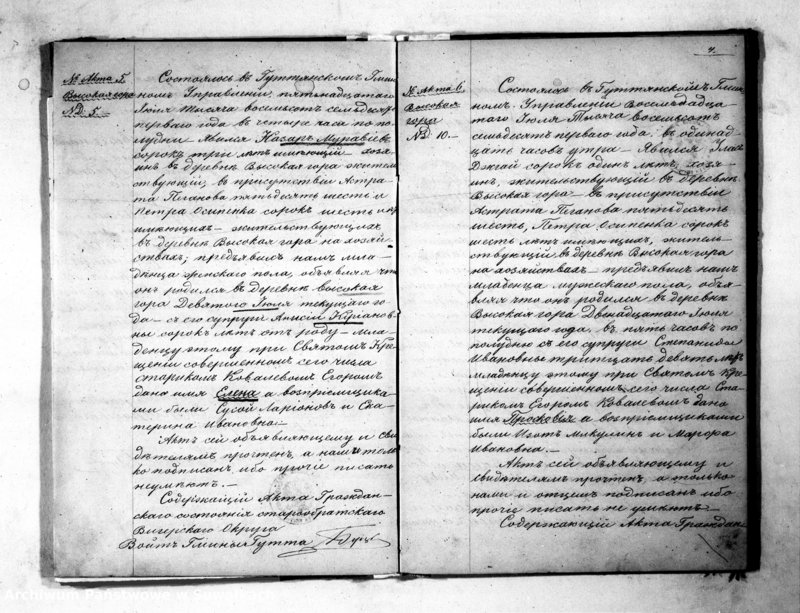 № Акта 5.
Высокая гора
№Д. 5.
Состоялось въ Гуттянскомъ Гмин
номъ Управленіи, пятнадцатаго
Іюля тысяча восемьсотъ семьдесятъ
перваго года въ четыре часа по по
лудни. Явился Назаръ Муравіевъ
сорокъ три лѣтъ имѣющій хозя
инъ въ деревнѣ Высокая гора житель
ствующій, въ присутствіи Астра
та Пѣганова пятьдесятъ шесть и
Петра Осипенка сорокъ шесть лѣтъ
имѣющихъ – жительствующихъ
въ деревнѣ Высокая гора на хозяй
ствахъ; предъявилъ намъ мла–
денца женскаго пола, объявляя что
онъ родился въ деревнѣ высокая
гора Девятого Іюля текущаго го
да – съ его супруги Анисіи Купріанов
ны сорокъ лѣтъ отъ роду – мла–
денцу этому при Святомъ Кре
щеніи совершенномъ сего числа
старикомъ Ковалевомъ Егоромъ
дано имя Елена а воспріемщика
ми были Сусой Ларіоновъ и Ека
терина Ивановна. –
Актъ сей объявляющему и сви
дѣтелямъ прочтенъ, а нами толь
ко подписанъ, ибо прочіе писать
неумѣютъ. –
Содержащій Акта Граждан–
скаго состоянія старообрядскаго
Вигерскаго Округа
Войтъ Гмины Гутта
4.
№ Акта 6.
Высокая
гора
№Д. 10. –
Состоялось въ Гуттянскомъ Гмин
номъ Управленіи Восемьдадца
таго Іюля Тысяча восемьсотъ
семьдесятъ перваго года въ одинад
цать часовъ утра – Явился
сорокъ одинъ лѣтъ, хозя
инъ, жительствующій въ деревнѣ
Высокая гора – въ присутствіи
Астрата Пѣганова пятьдесятъ
шесть, Петра Осипенка сорокъ
шесть лѣтъ имѣющихъ, житель–
ствующій въ деревнѣ Высокая гора
на хозяйствахъ – предъявилъ намъ
младенца мужескаго пола, объя
вляя что онъ родился въ деревнѣ
Высокая гора Двенадцатаго Іюля
текущаго года, въ пять часовъ по
полудню съ его супруги Степаниды
Ивановны тритцать девять лѣтъ
младенцу этому при Святомъ Кре
щеніи совершенномъ сего числа Ста
рикомъ Егоромъ Ковалевомъ дано
имя Просковія а воспріемщиками
были Изотъ Микулинъ и Марфа
Ивановна. –
Актъ сей объявляющему и
свидѣтелямъ прочтенъ, а только
нами и отцемъ подписанъ ибо
прочіе писать не умѣютъ. –
Содержающій Акта Граждан
Archiwum Państwowe w Suwałkach